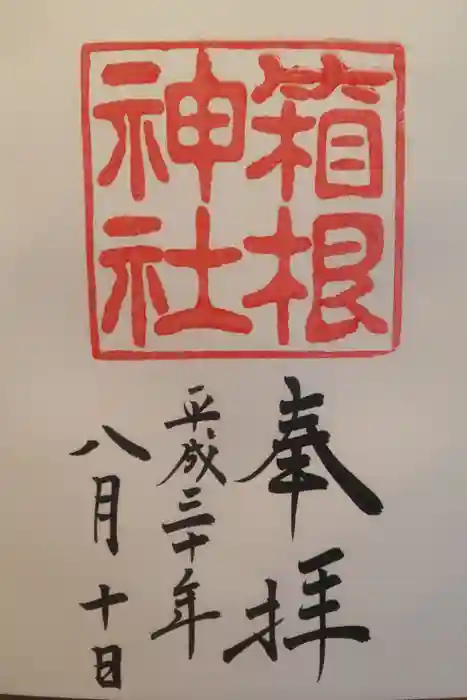 箱根
神社
奉拝
平成三十年
八月十日